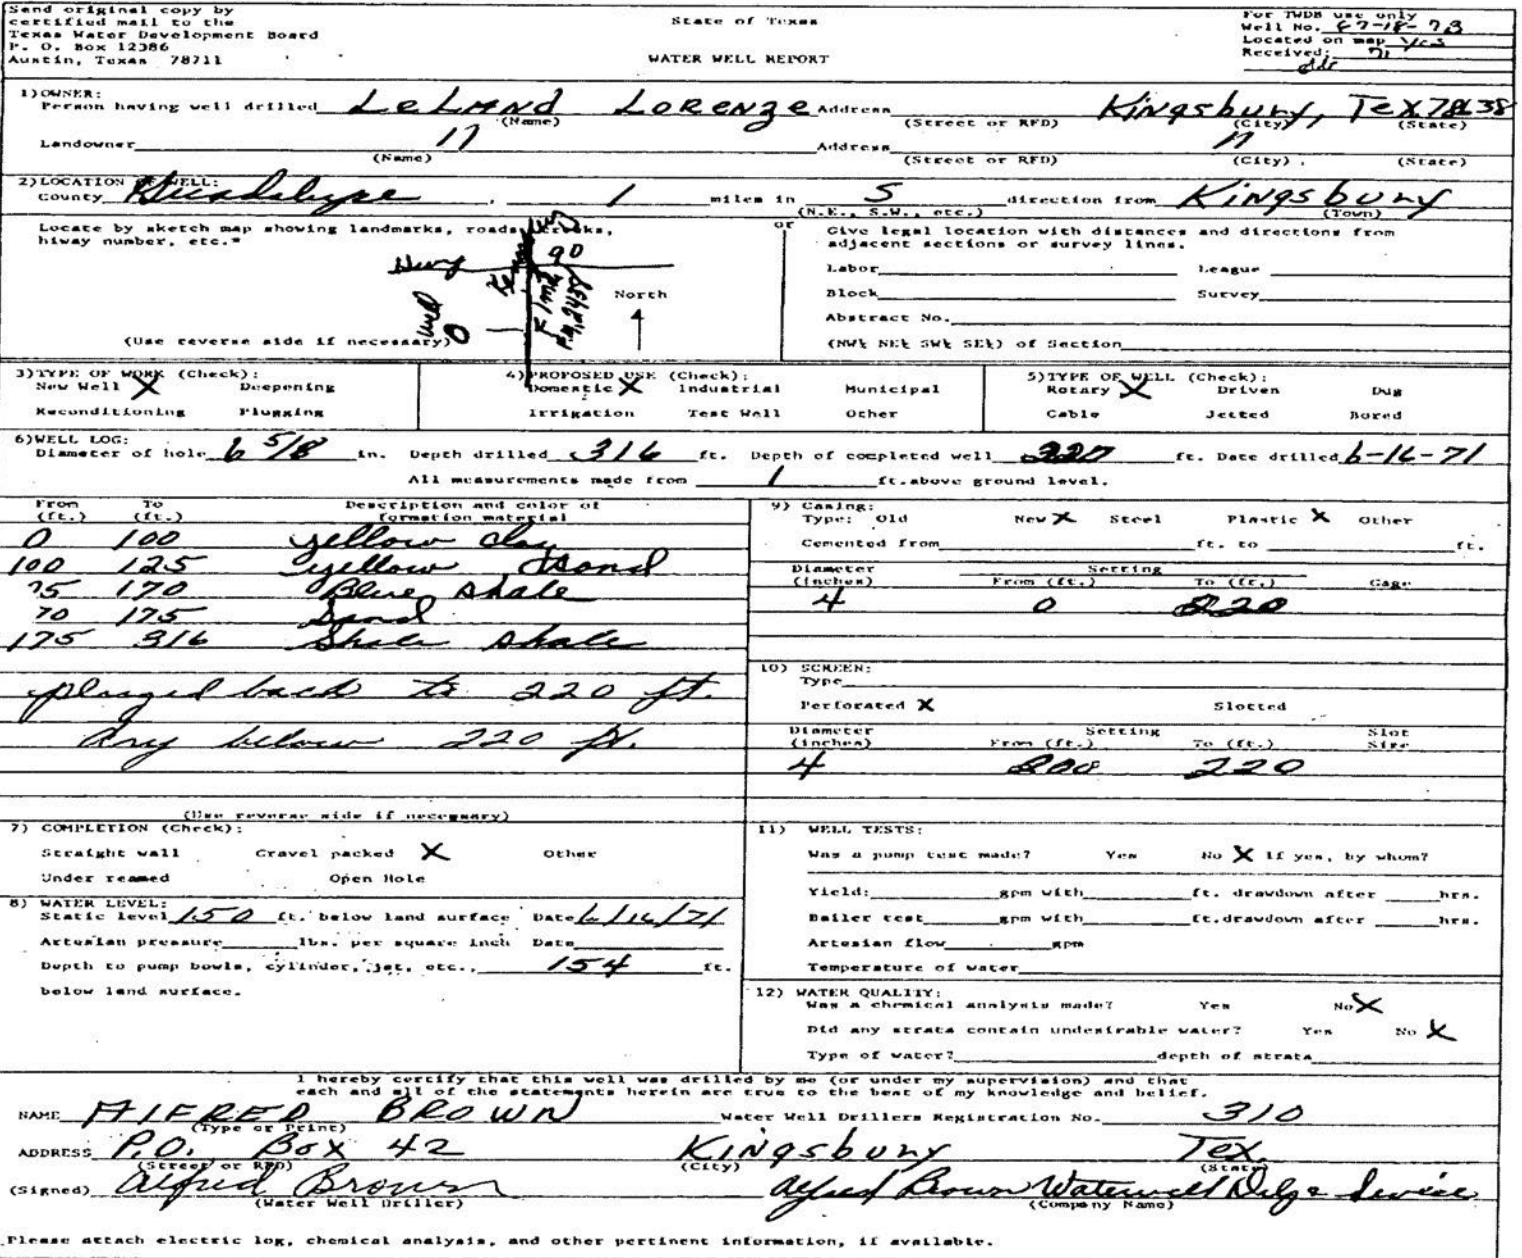 Send original copy by
certified mail to the
Texas Water Development Board
P. O. Box 12386
Austin, Texas 78711
State of Texas
WATER WELL REPORT
For TWDB use only
Well No. 67-18-7B
Located on map yes
Received: 71
1)OWNER:
Person having well drilled LeLAND LORENZE Address Kingsbury, Tex 78638
(Name) (Street or RFD) (City) (State)
Landowner 11 Address 11
(Name) (Street or RFD) (City) (State)
2)LOCATION OF WELL:
County Guadalupe , 1 miles in S direction from Kingsbury
(N.E., S.W., etc.) (Town)
Locate by sketch map showing landmarks, roads, creeks,
hiway number, etc.*
Hwy 90
Well
North
(Use reverse side if necessary)
or
Give legal location with distances and directions from
adjacent sections or survey lines.
Labor League
Block Survey
Abstract No.
(NW¼ NE¼ SW¼ SE¼) of Section
3)TYPE OF WORK (Check):
New Well X Deepening
Reconditioning Plugging
4)PROPOSED USE (Check):
Domestic X Industrial Municipal
Irrigation Test Well Other
5)TYPE OF WELL (Check):
Rotary X Driven Dug
Cable Jetted Bored
6)WELL LOG:
Diameter of hole 6 5/8 in. Depth drilled 316 ft. Depth of completed well 220 ft. Date drilled 6-16-71
All measurements made from 1 ft.above ground level.
From (ft.) To (ft.) Description and color of formation material
0 100 yellow clay
100 125 yellow sand
25 170 Blue shale
70 175 Sand
175 316 Shale shale
pluged back to 220 ft.
dry below 220 ft.
(Use reverse side if necessary)
9) Casing:
Type: Old New X Steel Plastic X Other
Cemented from ft. to ft.
Diameter (inches) Setting From (ft.) To (ft.) Gage
4 0 220
10) SCREEN:
Type
Perforated X Slotted
Diameter (inches) Setting From (ft.) To (ft.) Slot Size
4 200 220
7) COMPLETION (Check):
Straight wall Gravel packed X Other
Under reamed Open Hole
8) WATER LEVEL:
Static level 150 ft. below land surface Date 6/16/71
Artesian pressure lbs. per square inch Date
Depth to pump bowls, cylinder, jet, etc., 154 ft.
below land surface.
11) WELL TESTS:
Was a pump test made? Yes No X If yes, by whom?
Yield: gpm with ft. drawdown after hrs.
Bailer test gpm with ft.drawdown after hrs.
Artesian flow gpm
Temperature of water
12) WATER QUALITY:
Was a chemical analysis made? Yes No X
Did any strata contain undesirable water? Yes No X
Type of water? depth of strata
I hereby certify that this well was drilled by me (or under my supervision) and that
each and all of the statements herein are true to the best of my knowledge and belief.
NAME AlFRED BROWN Water Well Drillers Registration No. 310
(Type or Print)
ADDRESS P.O. Box 42 Kingsbury Tex.
(Street or RFD) (City) (State)
(Signed) Alfred Brown Alfred Brown Waterwell Drlg. Service
(Water Well Driller) (Company Name)
Please attach electric log, chemical analysis, and other pertinent information, if available.